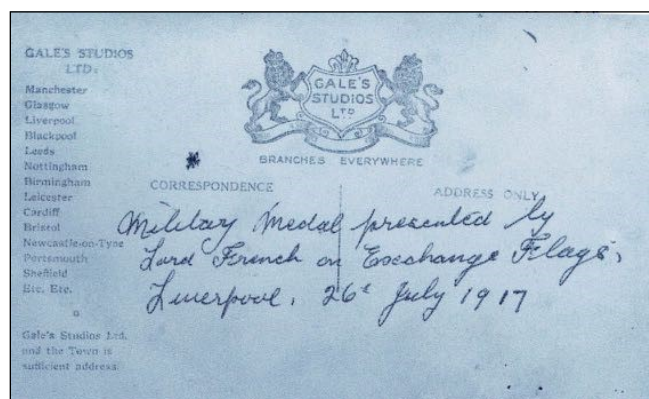 GALE'S STUDIOS
LTD.
Manchester
Glasgow
Liverpool
Blackpool
Leeds
Nottingham
Birmingham
Leicester
Cardiff
Bristol
Newcastle-on-Tyne
Portsmouth
Sheffield
Etc. Etc.
Gale's Studios Ltd.
and the Town is
sufficient address.
GALE'S
STUDIOS
LTD
BRANCHES EVERYWHERE
CORRESPONDENCE
ADDRESS ONLY
Military Medal presented by
Lord French on Exchange Flags,
Liverpool, 26th July 1917